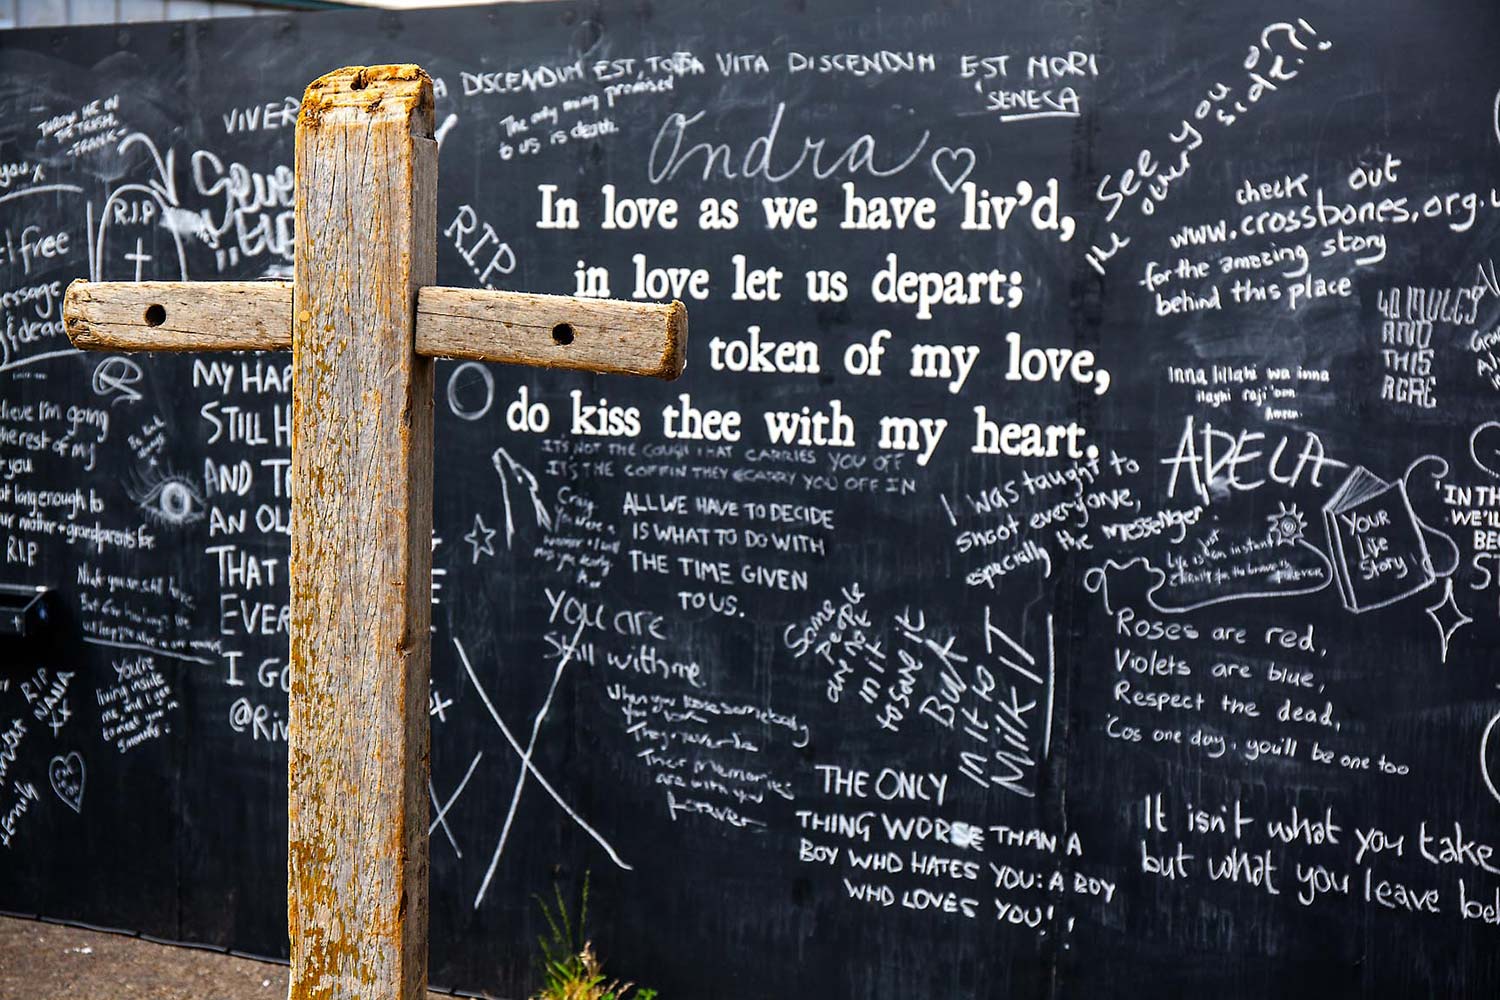 THROW ME IN
THE TRASH.
-FRANK-
you x
R.I.P
free
message
dead
VIVER
A DISCENDUM EST, TOTA VITA DISCENDUM EST MORI
'SENECA
The only thing promised
to us is death.
Ondra
In love as we have liv'd,
in love let us depart;
token of my love,
do kiss thee with my heart.
R.I.P.
See you
on
the other side?!
check out
www.crossbones.org.u
for the amazing story
behind this place
40 MULES
AND
THIS
ACRE
Inna lillahi wa inna
ilayhi raji'oon
Ameen.
ADELA
I'm going
the rest of my
you
long enough to
mother + grandparents for
RIP
MY HAP
STILL H
AND T
AN OL
THAT
EVER
I GO
@Riv
IT'S NOT THE COUGH THAT CARRIES YOU OFF
IT'S THE COFFIN THEY CARRY YOU OFF IN
Craig
You were a
ALL WE HAVE TO DECIDE
IS WHAT TO DO WITH
THE TIME GIVEN
TO US.
I was taught to
shoot everyone,
especially the messenger
Life is just
an instant
YOUR
Life
Story
IN TH
WE'LL
BE
YOU are
Still with me.
When you lose somebody
you love
Their memories
are with you
forever
Some
people
are not
in it
to save it
But
in it to
MilK IT
Roses are red,
Violets are blue,
Respect the dead,
'Cos one day, you'll be one too
RIP
NANA
XX
You're
living inside
me, and I get
to meet you in
5 months.
THE ONLY
THING WORSE THAN A
BOY WHO HATES YOU: A BOY
WHO LOVES YOU!!
It isn't what you take
but what you leave be